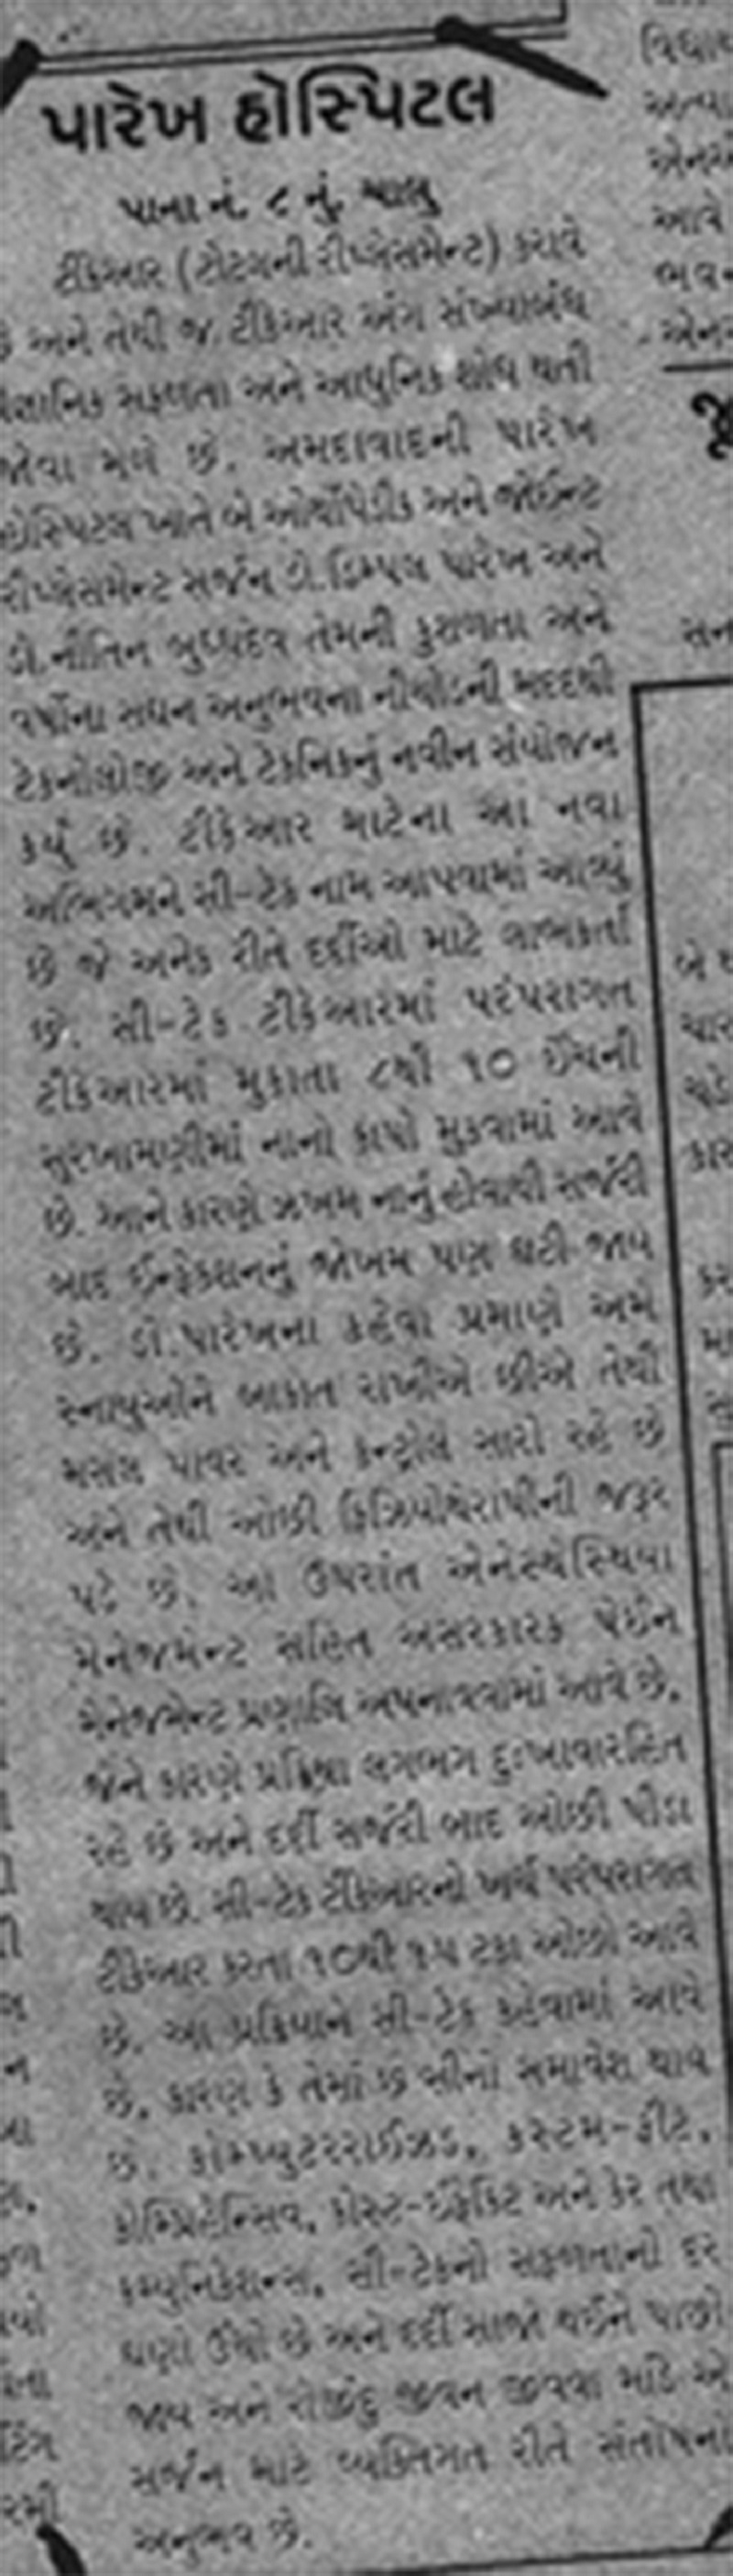 પારેખ હોસ્પિટલ
પાના નં. ૮ નું ચાલુ
ટીકેઆર (ટોટલની રીપ્લેસમેન્ટ) કરાવે
છે અને તેથી જ ટીકેઆર અંગે સંખ્યાબંધ
વૈજ્ઞાનિક સફળતા અને આધુનિક શોધ થતી
જોવા મળે છે. અમદાવાદની પારેખ
હોસ્પિટલ ખાતે બે ઓર્થોપેડીક અને જોઈન્ટ
રીપ્લેસમેન્ટ સર્જન ડો.ડિમ્પલ પારેખ અને
ડો.નીતિન બુધ્ધદેવ તેમની કુશળતા અને
વર્ષોના સઘન અનુભવના નીચોડની મદદથી
ટેકનોલોજી અને ટેકનિકનું નવીન સંયોજન
કર્યું છે. ટીકેઆર માટેના આ નવા
અભિગમને સી-ટેક નામ આપવામાં આવ્યું
છે જે અનેક રીતે દર્દીઓ માટે લાભકર્તા
છે. સી-ટેક ટીકેઆરમાં પરંપરાગત
ટીકેઆરમાં મુકાતા ૮થી ૧૦ ઈંચની
સુરખામણીમાં નાનો કાપો મુકવામાં આવે
છે. આને કારણે ઝખમ નાનું હોવાથી સર્જરી
બાદ ઈન્ફેકશનનું જોખમ પણ ઘટી જાય
છે. ડો.પારેખના કહેવા પ્રમાણે અમે
સ્નાયુઓને બાકાત રાખીએ છીએ તેથી
મસલ પાવર અને કન્ટ્રોલ સારો રહે છે
અને તેથી ઓછી ફિઝિયોથેરાપીની જરૂર
પડે છે. આ ઉપરાંત એનેસ્થેસ્થિયા
મેનેજમેન્ટ સહિત અસરકારક પેઈન
મેનેજમેન્ટ પ્રણાલિ અપનાવવામાં આવે છે,
જેને કારણે પ્રક્રિયા લગભગ દુઃખાવારહિત
રહે છે અને દર્દી સર્જરી બાદ ઓછી પીડા
થાય છે. સી-ટેક ટીકેઆરનો ખર્ચ પરંપરાગત
ટીકેઆર કરતા ૧૦થી ૧૫ ટકા ઓછો આવે
છે. આ પ્રક્રિયાને સી-ટેક કહેવામાં આવે
છે, કારણ કે તેમાં છ સીનો સમાવેશ થાય
છે. કોમ્પ્યુટરરાઈઝડ, કસ્ટમ-ફીટ,
કોમ્પ્રિહેન્સિવ, કોસ્ટ-ઈફેક્ટિ અને કેર તથા
કમ્યુનિકેશન્સ, સી-ટેકનો સફળતાનો દર
ઘણો ઉંચો છે અને દર્દી સાજો થઈને પાછો
જાય અને રોજીંદુ જીવન જીવવા માંડે એ
સર્જન માટે વ્યક્તિગત રીતે સંતોષનો
અનુભવ છે.